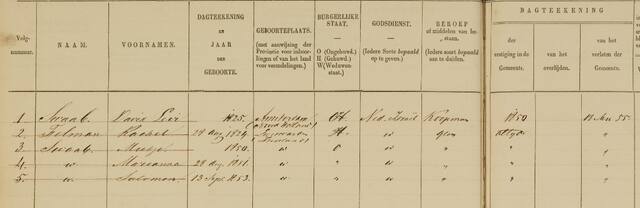 DAGTEEKENING
Volg-nummer.
NAAM.
VOORNAMEN.
DAGTEEKENING
EN
JAAR
DER
GEBOORTE.
GEBOORTEPLAATS.
(met aanwijzing der
Provincie voor inboor-
lingen of van het land
voor vreemdelingen.)
BURGERLIJKE
STAAT.
O (Ongehuwd.)
H (Gehuwd.)
W (Weduwen-
staat.)
GODSDIENST.
(Iedere Secte bepaald
op te geven.)
BEROEP
of middelen van be-
staan.
(Iedere soort bepaald
aan te duiden.)
der
vestiging in de
Gemeente.
van het
overlijden.
van het
verlaten der
Gemeente.
1 Swaab. 1825. Amsterdam H. Ned. Israël Koopman 1850 55
2 Rachel 1829. H " "
3 Swaab. 1850. " O " " "
4 " Marianna 28 Aug 1851. " " " " "
5 " Salomon 13 Sept 1853. " " " " "